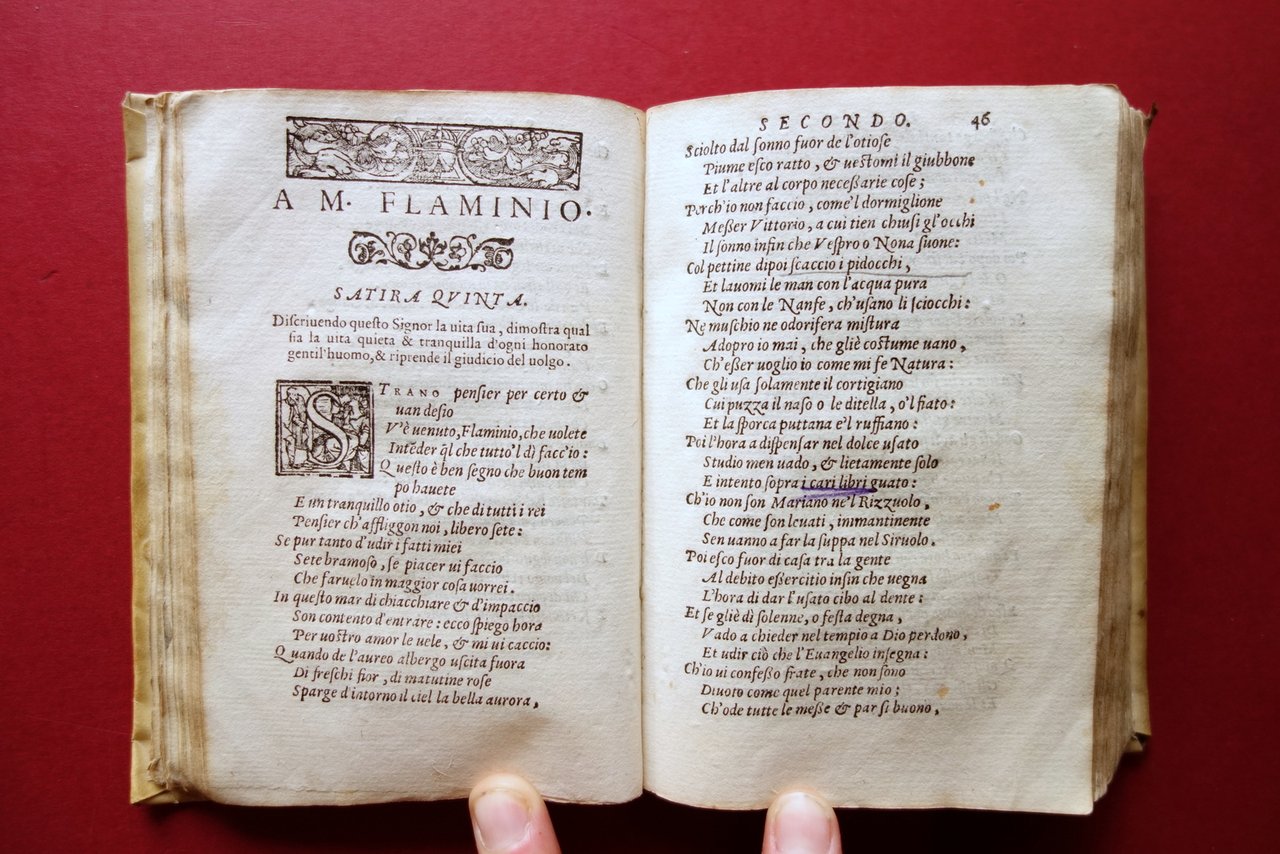 A M. FLAMINIO.
SATIRA QVINTA.
Discriuendo questo Signor la uita sua, dimostra qual
sia la uita quieta & tranquilla d'ogni honorato
gentil'huomo, & riprende il giudicio del uolgo.
STRANO pensier per certo &
uan desio
V'è uenuto, Flaminio, che uolete
Intēder q̄l che tutto'l dì facc'io:
Questo è ben segno che buon tem
po hauete
E un tranquillo otio, & che di tutti i rei
Pensier ch'affliggon noi, libero sete:
Se pur tanto d'udir i fatti miei
Sete bramoso, se piacer ui faccio
Che faruelo in maggior cosa uorrei.
In questo mar di chiacchiare & d'impaccio
Son contento d'entrare: ecco spiego hora
Per uostro amor le uele, & mi ui caccio:
Quando de l'aureo albergo uscita fuora
Di freschi fior, di matutine rose
Sparge d'intorno il ciel la bella aurora,
SECONDO. 46
Sciolto dal sonno fuor de l'otiose
Piume esco ratto, & uestomi il giubbone
Et l'altre al corpo necessarie cose;
Perch'io non faccio, come'l dormiglione
Messer Vittorio, a cui tien chiusi gl'occhi
Il sonno infin che Vespro o Nona suone:
Col pettine dipoi scaccio i pidocchi,
Et lauomi le man con l'acqua pura
Non con le Nanfe, ch'usano li sciocchi:
Ne muschio ne odorifera mistura
Adopro io mai, che gliè costume uano,
Ch'esser uoglio io come mi fe Natura:
Che gli usa solamente il cortigiano
Cui puzza il naso o le ditella, o'l fiato:
Et la sporca puttana e'l ruffiano:
Poi l'hora a dispensar nel dolce usato
Studio men uado, & lietamente solo
E intento sopra i cari libri guato:
Ch'io non son Mariano ne'l Rizzuolo,
Che come son leuati, immantinente
Sen uanno a far la suppa nel Siruolo.
Poi esco fuor di casa tra la gente
Al debito essercitio insin che uegna
L'hora di dar l'usato cibo al dente:
Et se gliè dì solenne, o festa degna,
Vado a chieder nel tempio a Dio perdono,
Et udir ciò che l'Euangelio insegna:
Ch'io ui confesso frate, che non sono
Diuoto come quel parente mio;
Ch'ode tutte le messe & par si buono,